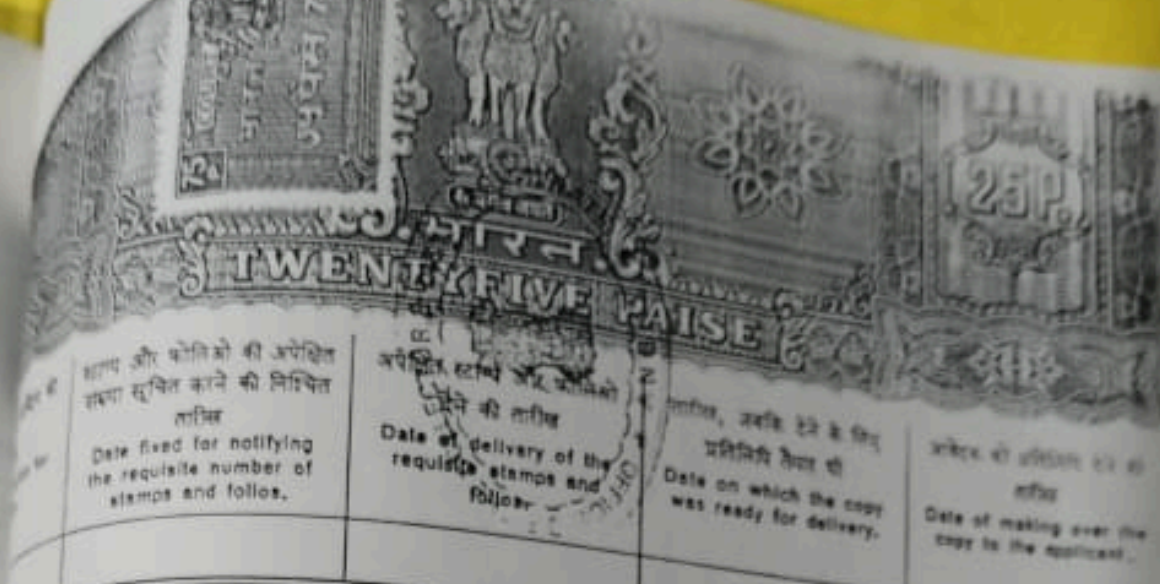 भारत
25 P.
TWENTYFIVE PAISE
और फोलिओ की अपेक्षित
संख्या सूचित करने की निश्चित
तारीख
Date fixed for notifying
the requisite number of
stamps and folios.
अपेक्षित स्टाम्प और फोलिओ
देने की तारीख
Date of delivery of the
requisite stamps and
folios
तारीख, जबकि देने के लिए
प्रतिलिपि तैयार थी
Date on which the copy
was ready for delivery.
आवेदक को प्रतिलिपि देने की
तारीख
Date of making over the
copy to the applicant.